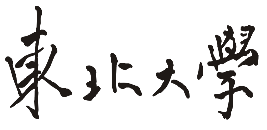 東北大學